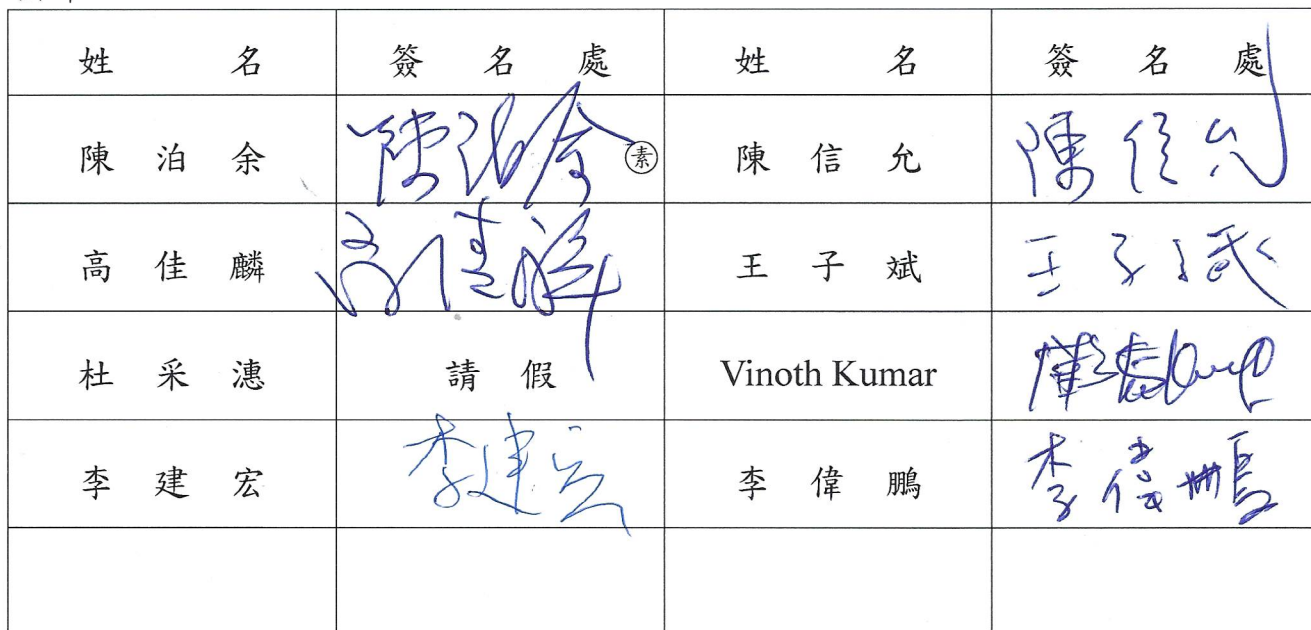 姓名 簽名處 姓名 簽名處
陳泊余 陳泊余 素 陳信允 陳信允
高佳麟 高佳麟 王子斌 王子斌
杜采潓 請假 Vinoth Kumar
李建宏 李建宏 李偉鵬 李偉鵬